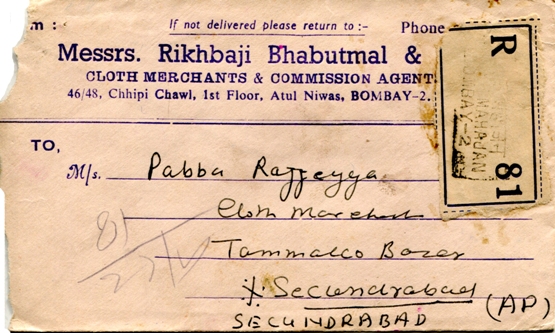 m :
If not delivered please return to :-
Phone
Messrs. Rikhbaji Bhabutmal &
CLOTH MERCHANTS & COMMISSION AGENT
46/48, Chhipi Chawl, 1st Floor, Atul Niwas, BOMBAY-2.
R
81
TO,
M/s. Pabba Rajjeyya
Cloth Marchent
Tammalco Bazar
Secundrabad
SECUNDRABAD (AP)
81